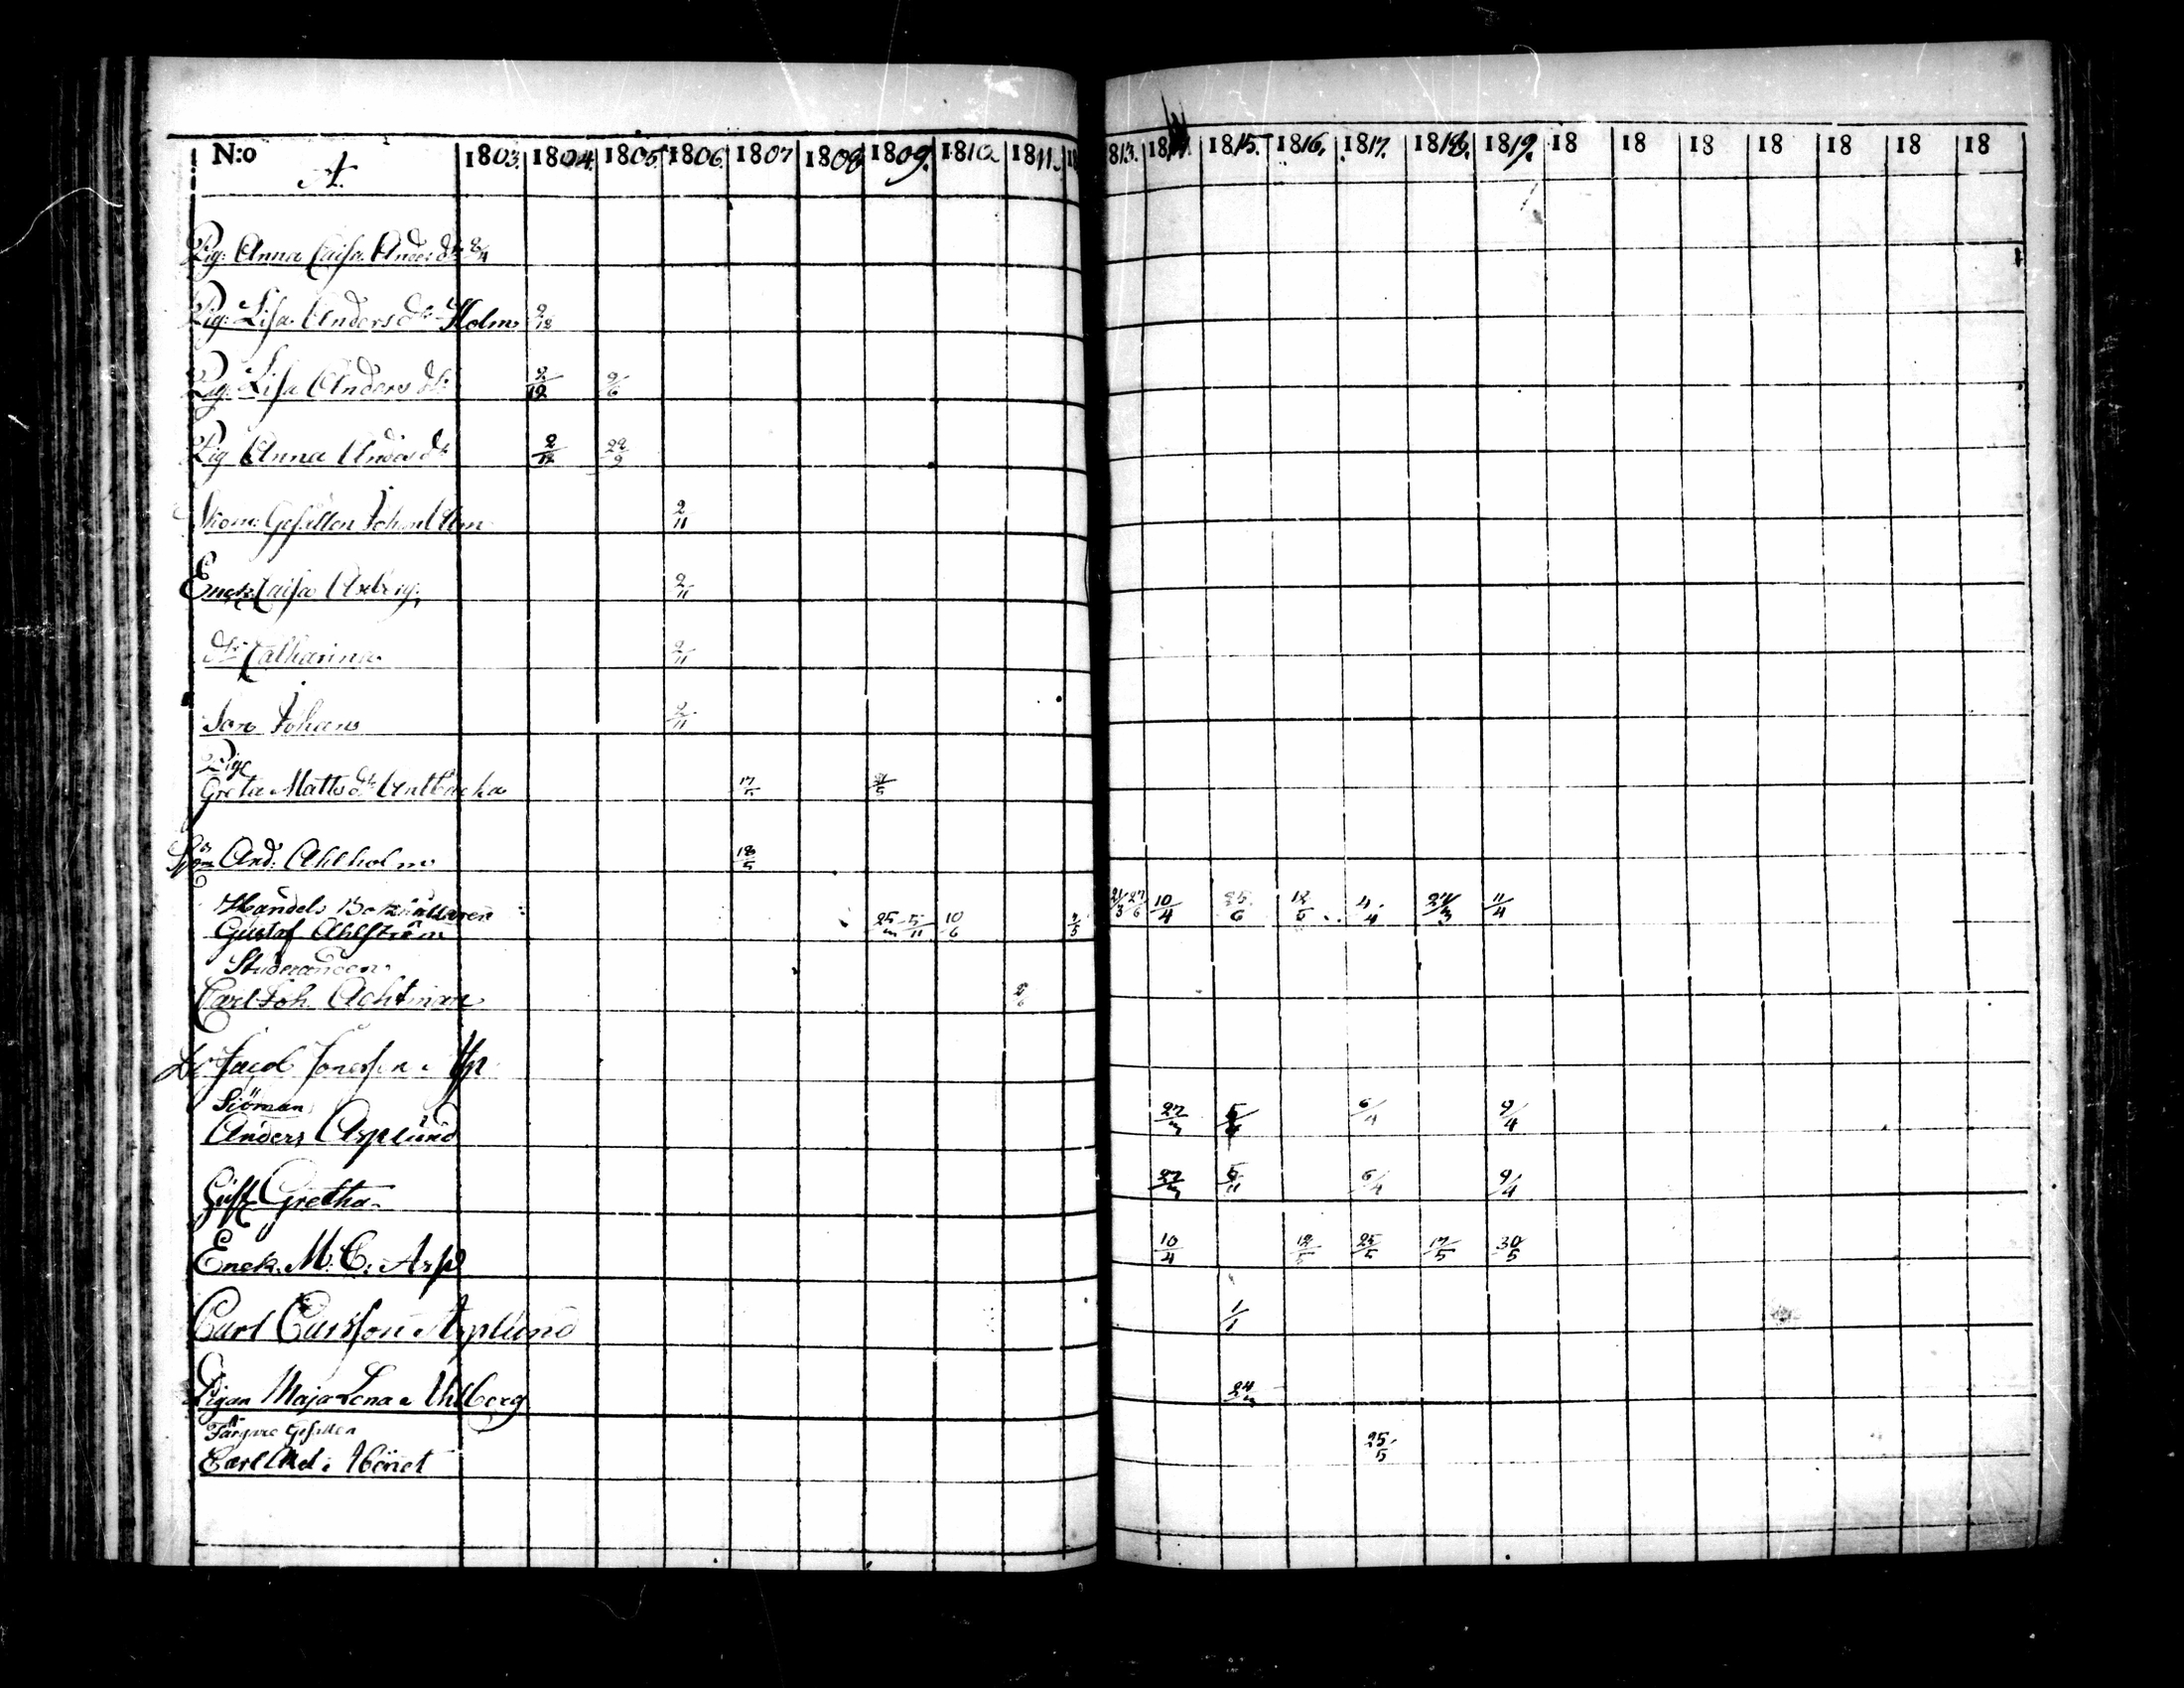 N:o 1803. 1804. 1805. 1806. 1807 1808 1809. 1810. 1811. 18 1813. 1814. 1815. 1816. 1817. 1818. 1819. 18 18 18 18 18 18 18
A.
Pig: Anna Caisa Anders dr 2/4
Pig: Lisa Anders dr Holm 2/12
Pig: Lisa Anders dr 2/12 2/6
Pig Anna Anders dr 2/12 22/9
Skom: Gesällen Johan Alm 2/11
Enck: Caisa Axberg 2/11
dr Catharina 2/11
Son Johan 2/11
Piga
Greta Matts dr Antbacka 17/5
And: Ahlholm 18/5
Handels Bokhållaren
Gustaf Ahlström 25/m 5/11 10/6 7/5 21/3 27/6 10/4 25/6 12/5 4/4 24/3 11/4
Studeranden
Carl Joh. Achtman
Jacob Arp
Siöman
Anders Asplund 27/m 6/4 9/4
Hust Gretha 27/m 5/11 6/4 9/4
Enck. M. C. Arp 10/4 12/5 25/5 17/5 30/5
Carl Carlson Asplund 1/1
Pigan Maja Lena Ahlberg 24/m
Färgare Gesällen
Carl 25/5